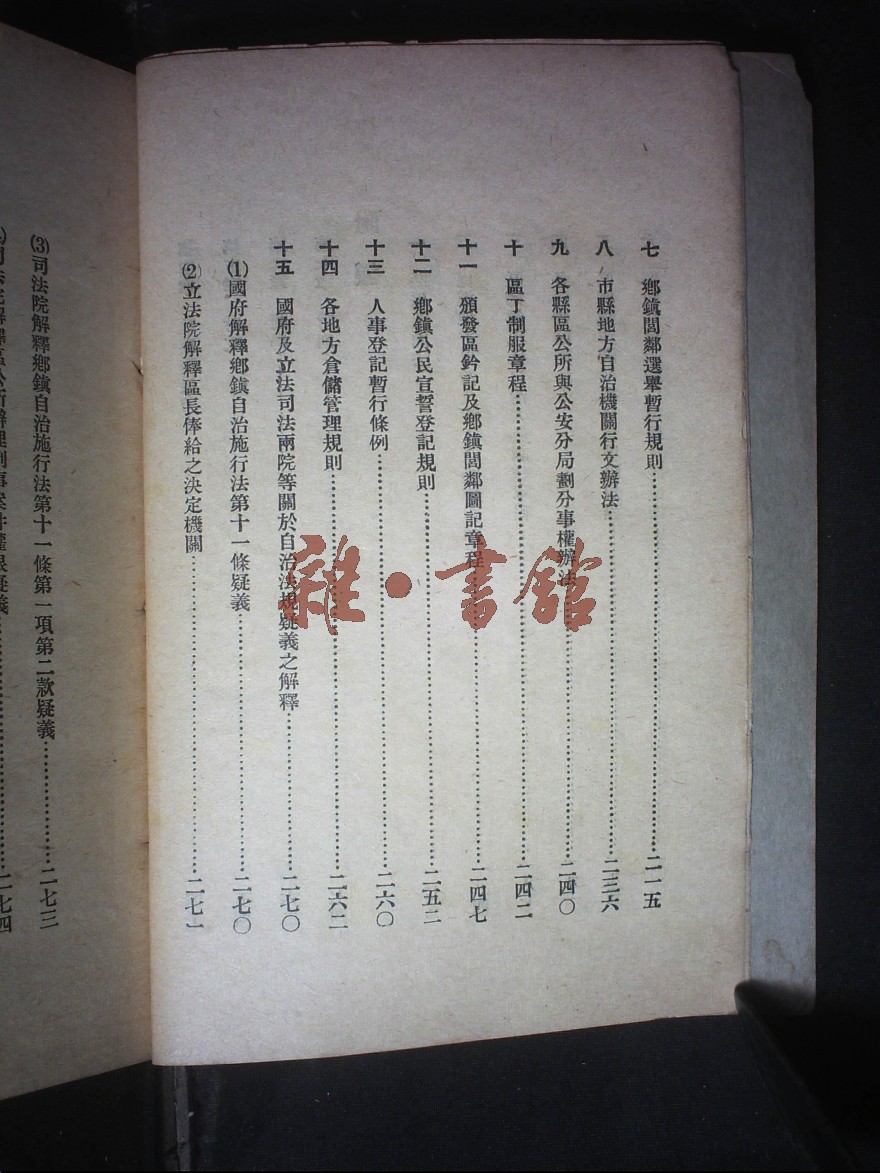 七　鄉鎮閭鄰選舉暫行規則……二一五
八　市縣地方自治機關行文辦法……二三六
九　各縣區公所與公安分局劃分事權辦法……二四〇
十　區丁制服章程……二四二
十一　頒發區鈐記及鄉鎮閭鄰圖記章程……二四七
十二　鄉鎮公民宣誓登記規則……二五二
十三　人事登記暫行條例……二六〇
十四　各地方倉儲管理規則……二六二
十五　國府及立法司法兩院等關於自治法規疑義之解釋……二七〇
(1)國府解釋鄉鎮自治施行法第十一條疑義……二七〇
(2)立法院解釋區長俸給之決定機關……二七一
(3)司法院解釋鄉鎮自治施行法第十一條第一項第二款疑義……二七三
司法院解釋區公所辦理刑事案件權限疑義……二七四
雜·書館